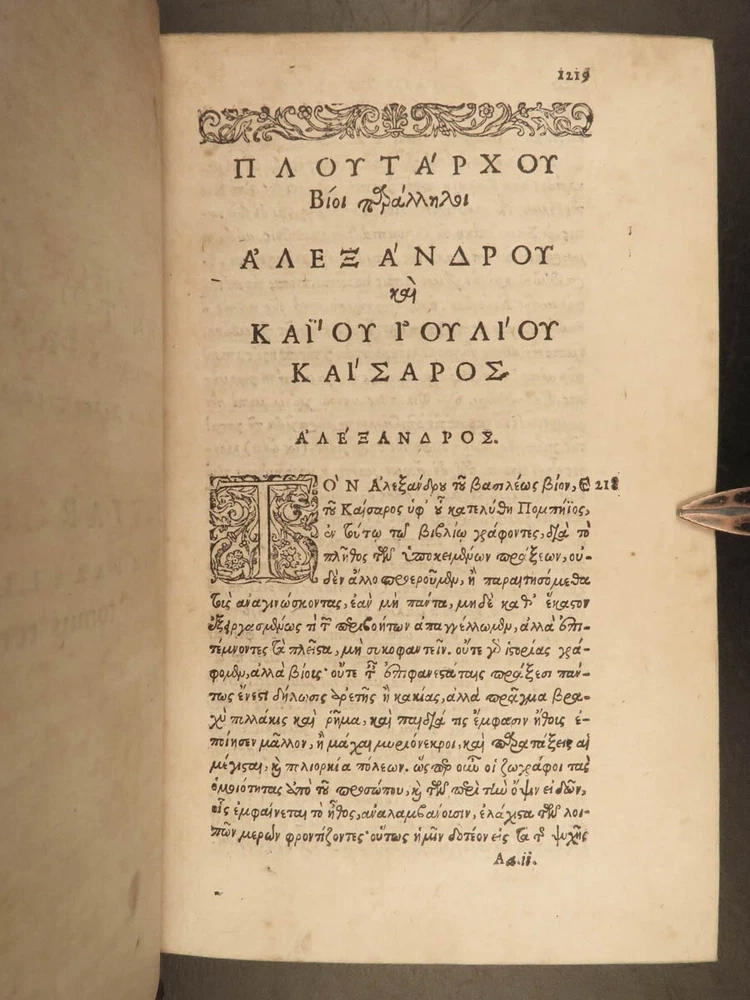 1219
ΠΛΟΥΤΑ΄ΡΧΟΥ
Βίοι παράλληλοι
Ἀ΄ΛΕΞΑ΄ΝΔΡΟΥ
καὶ
ΚΑΪ΄ΟΥ ἸΟΥΛΙ΄ΟΥ
ΚΑΙ΄ΣΑΡΟΣ
Ἀ΄ΛΕ΄ΞΑΝΔΡΟΣ.
ΤΟ῾Ν Ἀλεξάνδρου τοῦ βασιλέως βίον, καὶ 218
τοῦ Καίσαρος ὑφ' οὗ κατελύθη Πομπήϊος,
ἐν τούτῳ τῷ βιβλίῳ γράφοντες, διὰ τὸ
πλῆθος τῶν ὑποκειμένων πράξεων, οὐ-
δὲν ἄλλο προεροῦμεν, ἢ παραιτησόμεθα
τοὺς ἀναγινώσκοντας, ἐὰν μὴ πάντα, μηδὲ καθ' ἕκαστον
ἐξειργασμένως τὶ τῶν περιβοήτων ἀπαγγέλλωμεν, ἀλλὰ ἐπι-
τέμνοντες τὰ πλεῖστα, μὴ συκοφαντεῖν. οὔτε γὸ ἱστορίας γρά-
φομεν, ἀλλὰ βίοις· οὔτε ταῖς ἐπιφανεστάταις πράξεσι πάν-
τως ἔνεστι δήλωσις ἀρετῆς ἢ κακίας, ἀλλὰ πρᾶγμα βρα-
χὺ πολλάκις καὶ ῥῆμα, καὶ παιδιά τις ἔμφασιν ἤθοις ἐ-
ποίησεν μᾶλλον, ἢ μάχαι μυριόνεκροι, καὶ παρατάξεις αἱ
μέγισται, καὶ πολιορκία πόλεων. ὥσπερ οὖν οἱ ζωγράφοι τὰς
ὁμοιότητας ἀπὸ τοῦ προσώπου, καὶ τῶν περὶ τὴν ὄψιν εἰδῶν,
οἷς ἐμφαίνεται τὸ ἦθος, ἀναλαμβάνουσιν, ἐλάχιστα τῶν λοι-
πῶν μερῶν φροντίζοντες· οὕτως ἡμῖν δοτέον εἰς τὰ τῆς ψυχῆς
Aa.ii.